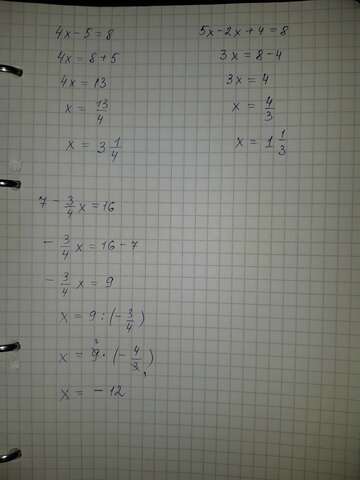 4x - 5 = 8
4x = 8 + 5
4x = 13
x = 13/4
x = 3 1/4
5x - 2x + 4 = 8
3x = 8 - 4
3x = 4
x = 4/3
x = 1 1/3
7 - 3/4 x = 16
- 3/4 x = 16 - 7
- 3/4 x = 9
x = 9 : (- 3/4)
x = 9 · (- 4/3)
x = - 12